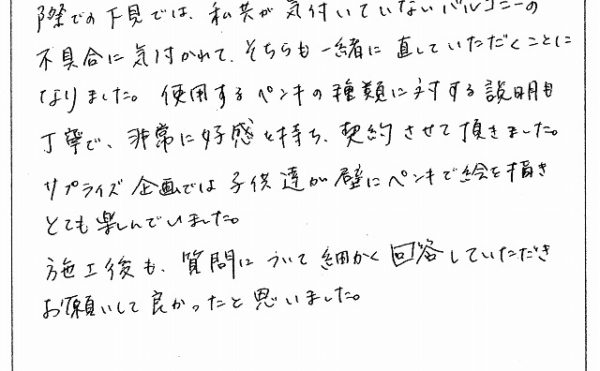 際での下見では、私共が気付いていないバルコニーの
不具合に気付かれて、そちらも一緒に直していただくことに
なりました。使用するペンキの種類に対する説明も
丁寧で、非常に好感を持ち、契約させて頂きました。
サプライズ企画では子供達が壁にペンキで絵を描き
とても楽しんでいました。
施工後も、質問について細かく回答していただき
お願いして良かったと思いました。